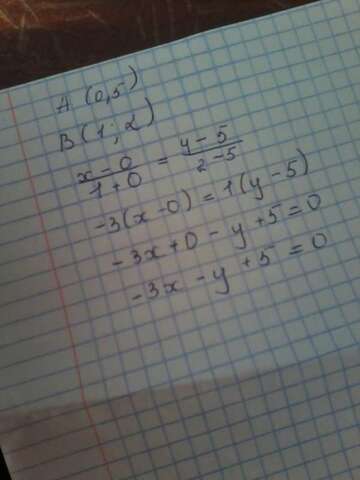 A (0,5)
B (1; 2)
x - 0 / 1 + 0 = y - 5 / 2 - 5
-3(x - 0) = 1(y - 5)
-3x + 0 - y + 5 = 0
-3x - y + 5 = 0